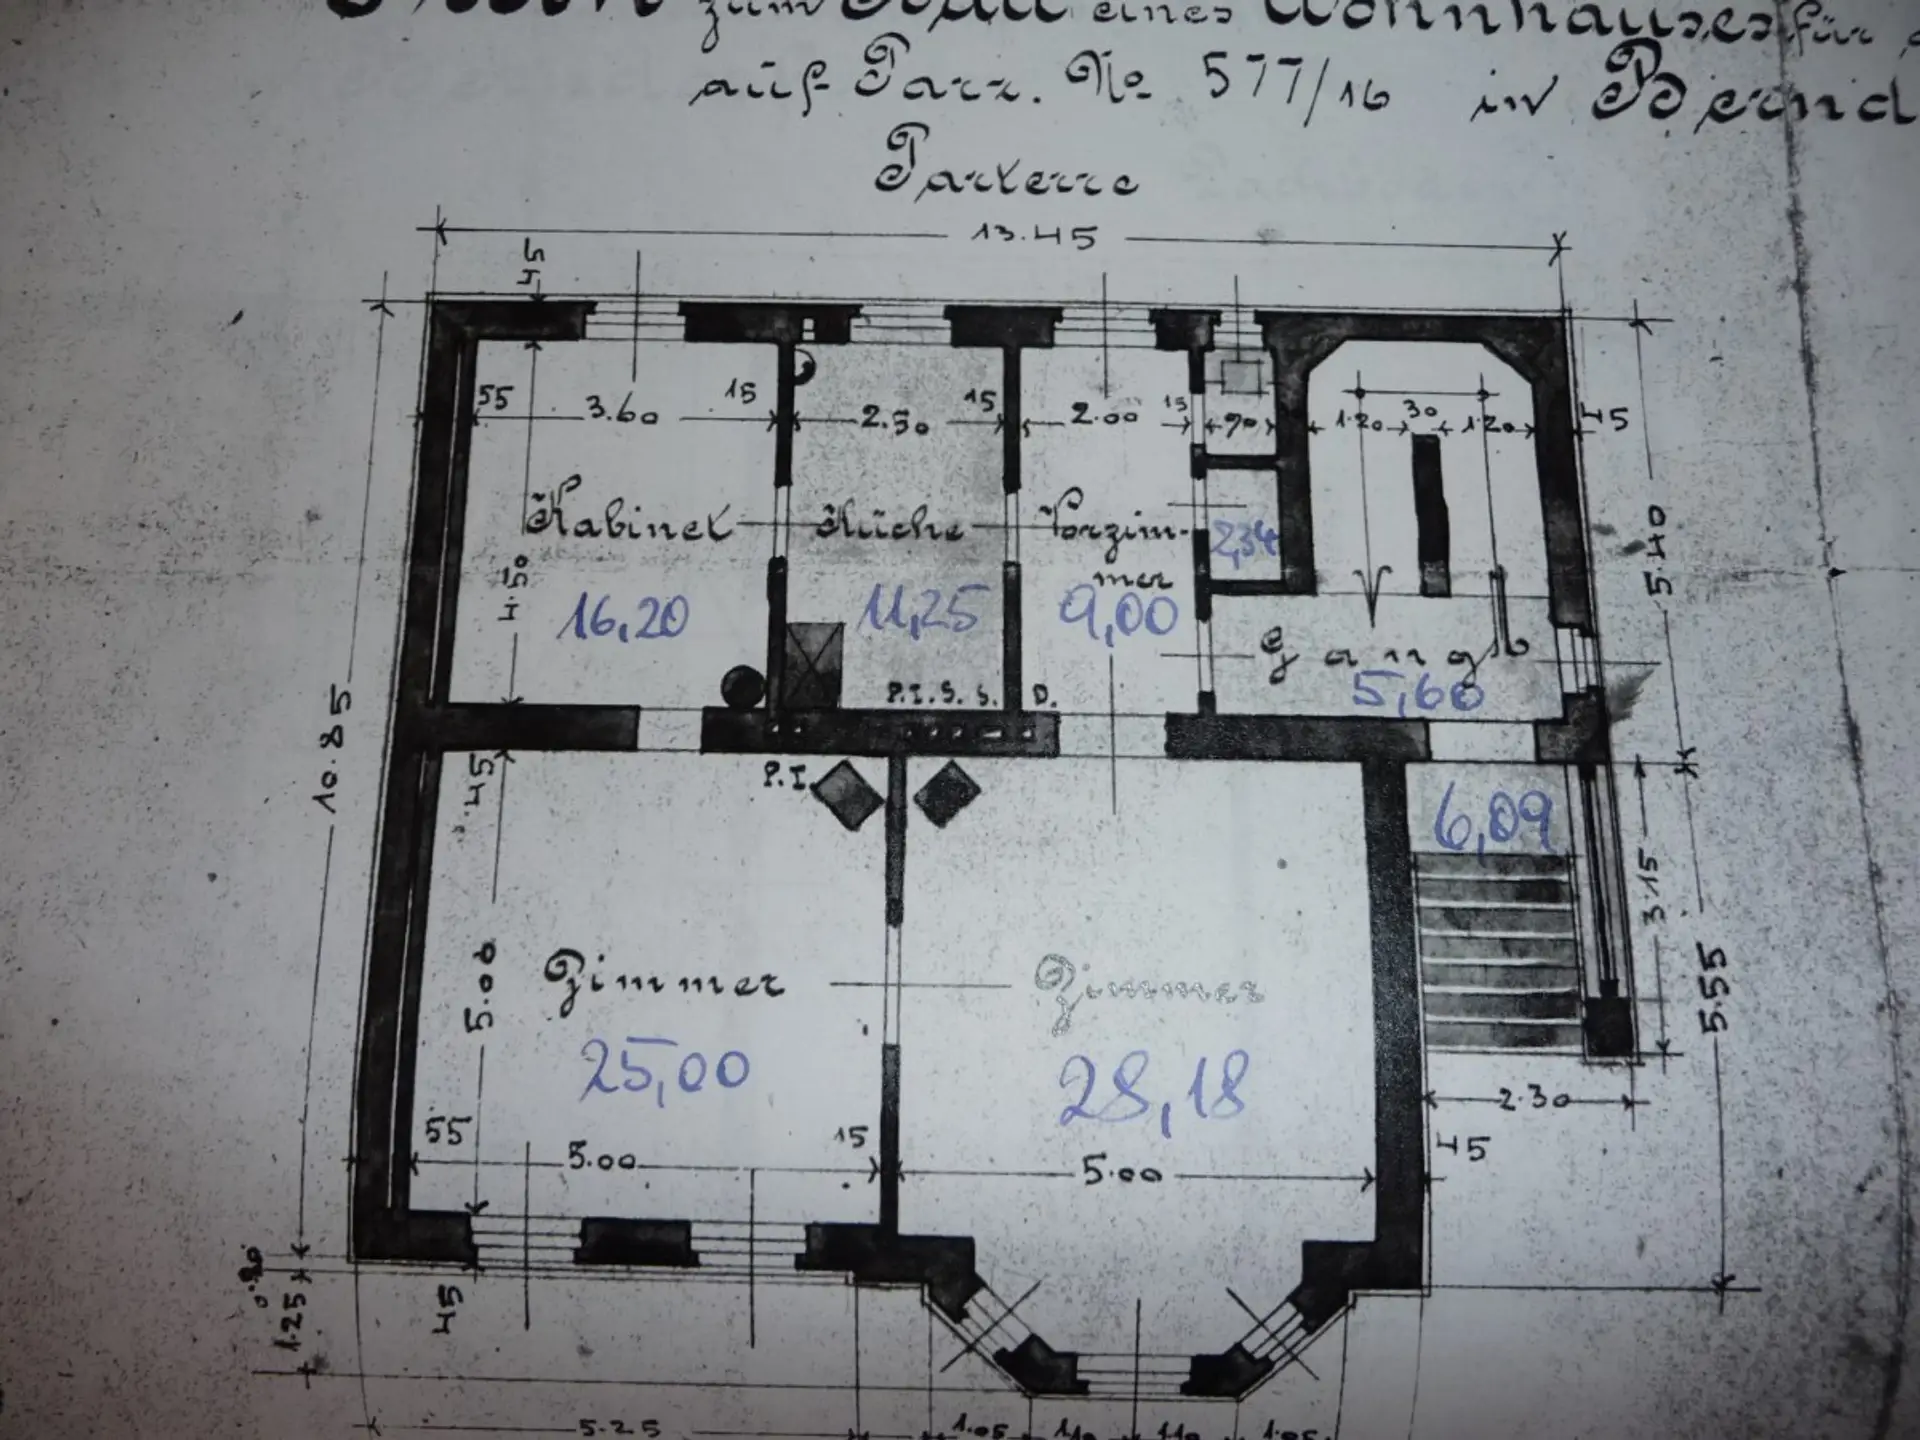 zum Bau eines Wohnhauses für
auf Parz. No 577/16 in Bernd
Parterre
13.45
45
55 3.60 15 2.50 15 2.00 15 90 1.20 30 1.20 45
Kabinet Küche Vorzim-
mer
4.50
16,20 11,25 9,00 2,34
5.40
Gang
5,60
P.I.S.S. D.
10.85
45
P.I.
6,09
3.15
5.55
5.00
Zimmer Zimmer
25,00 28,18
2.30
55 5.00 15 5.00 45
0.20
1.25
45
5.25 1.05 1.10 1.10 1.05